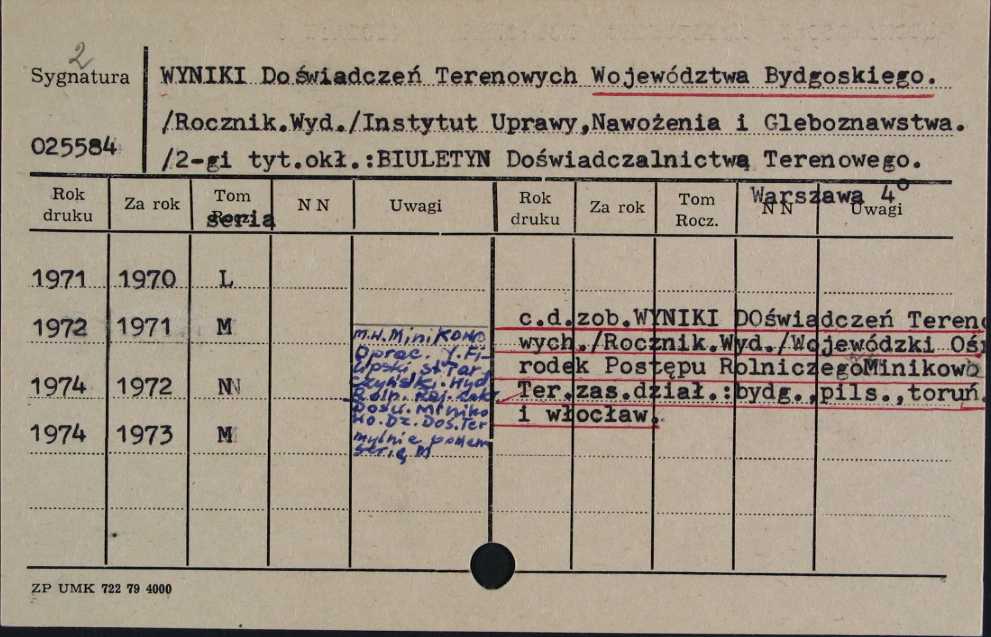 2
Sygnatura
WYNIKI Doświadczeń Terenowych Województwa Bydgoskiego.
/Rocznik.Wyd./Instytut Uprawy,Nawożenia i Gleboznawstwa.
025584
/2-gi tyt.okł.:BIULETYN Doświadczalnictwą Terenowego.
Warszawa 4°
Rok druku Za rok Tom Rocz. N N Uwagi Rok druku Za rok Tom Rocz. N N Uwagi
serią
1971 1970 L
1972 1971 M
1974 1972 N
1974 1973 M
m.w.Minikowo
Oprac. J.Fi-
lipski, St.Tar
czyński. Hyd
Dośw. Miniko
wo.Dz.Doś.Ter
mylnie ponum
serią M
c.d.zob.WYNIKI DOświadczeń Tereno
wych./Rocznik.Wyd./Wojewódzki Ośr
rodek Postępu RolniczegoMinikowo
Ter.zas.dział.:bydg.,pils.,toruń.
i włocław.
ZP UMK 722 79 4000